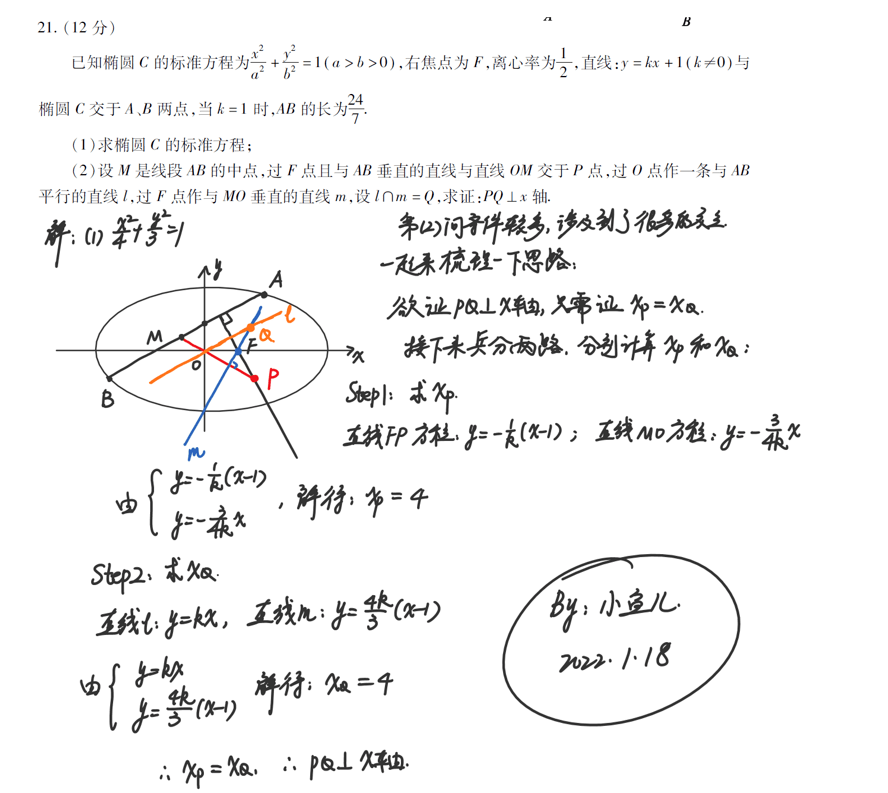 A B
21. (12 分)
已知椭圆 C 的标准方程为x²/a² + y²/b² = 1(a > b > 0), 右焦点为 F, 离心率为1/2, 直线: y = kx + 1(k ≠ 0)与
椭圆 C 交于 A、B 两点, 当 k = 1 时, AB 的长为24/7.
(1)求椭圆 C 的标准方程;
(2)设 M 是线段 AB 的中点, 过 F 点且与 AB 垂直的直线与直线 OM 交于 P 点, 过 O 点作一条与 AB
平行的直线 l, 过 F 点作与 MO 垂直的直线 m, 设 l∩m = Q, 求证: PQ⊥x 轴.
解: (1) x²/4 + y²/3 = 1
第(2)问条件较多, 涉及到了很多的交点
一起来梳理一下思路:
欲证PQ⊥x轴, 只需证 xP = xQ.
接下来兵分两路, 分别计算 xP 和 xQ:
y
A
l
M
Q
F
x
O
P
B
m
Step1: 求xP.
直线FP方程: y=-1/k(x-1); 直线MO方程: y=-3/4k x
由 { y=-1/k(x-1) y=-3/4k x , 解得: xP = 4
Step2: 求xQ.
直线l: y=kx, 直线m: y=4k/3(x-1)
由 { y=kx y=4k/3(x-1) 解得: xQ = 4
∴ xP = xQ, ∴ PQ⊥x轴.
By: 小鱼儿.
2022.1.18